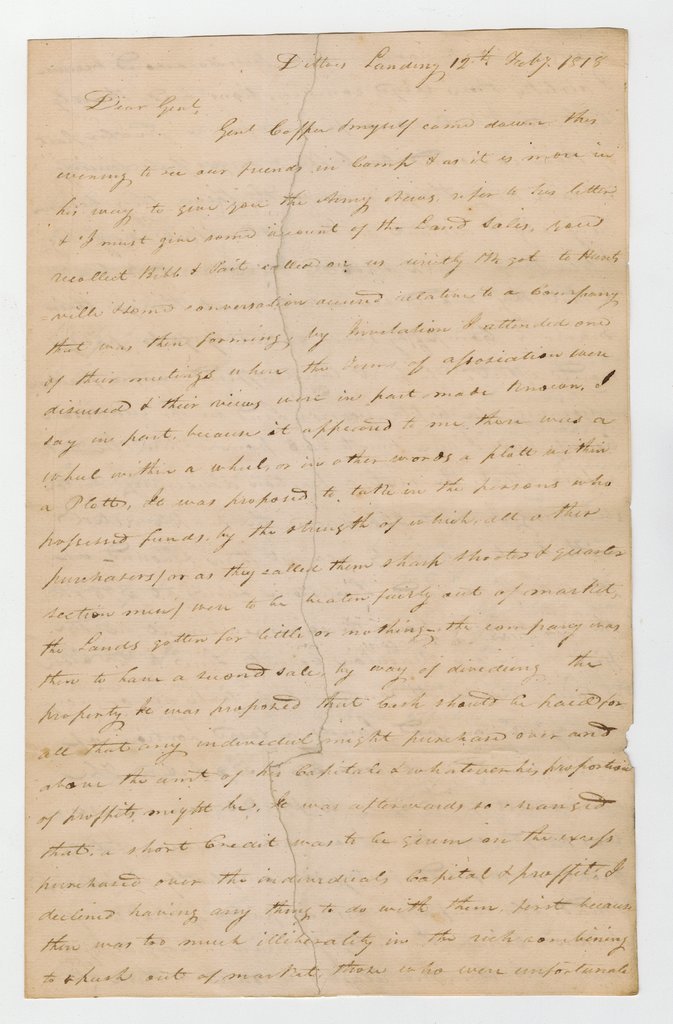 Dittos Landing 12th Feby. 1818
Dear Genl,
Genl Coffee & myself came down this
evening to see our friends in Camp & as it is more in
his way to give you the Army News, refer to his letter
& I must give some account of the Land Sales, you'd
recollect Bibb & Tait called on us directly We got to Hunts
=ville & some conversation occured relative to a Company
that was then forming, by Invitation I attended one
of their meetings where the Terms of assosiation were
discused & their views were in part made known, I
say in part, because it appeared to me there was a
wheel within a wheel, or in other words a plott within
a Plott, It was proposed to take in the persons who
possessed funds, by the strength of which, all other
purchasers (or as they called them sharp shooters & quarter
section men) were to be beaten fairly out of market,
the Lands gotten for little or nothing - the company was
then to have a second sale by way of divideing the
property. It was proposed that Cash should be paid for
all that any individual might purchase over and
above the amt of his Capital & whatever his proportion
of proffits might be, It was afterwards so arranged
that, a short Credit was to be given on the excess
purchased over the individuals Capital & proffit; I
declined having any thing to do with them, first because
there was too much illiberality in the rich combining
to push out of market, those who were unfortunate